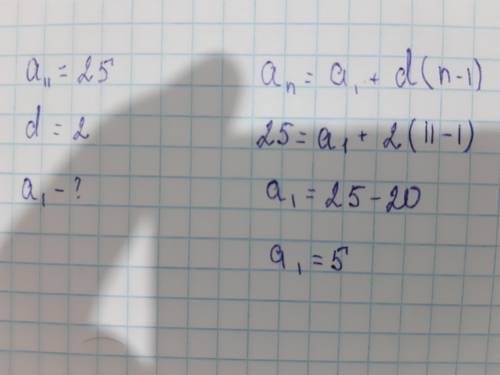 a₁₁ = 25
d = 2
a₁ - ?
aₙ = a₁ + d(n-1)
25 = a₁ + 2(11-1)
a₁ = 25 - 20
a₁ = 5